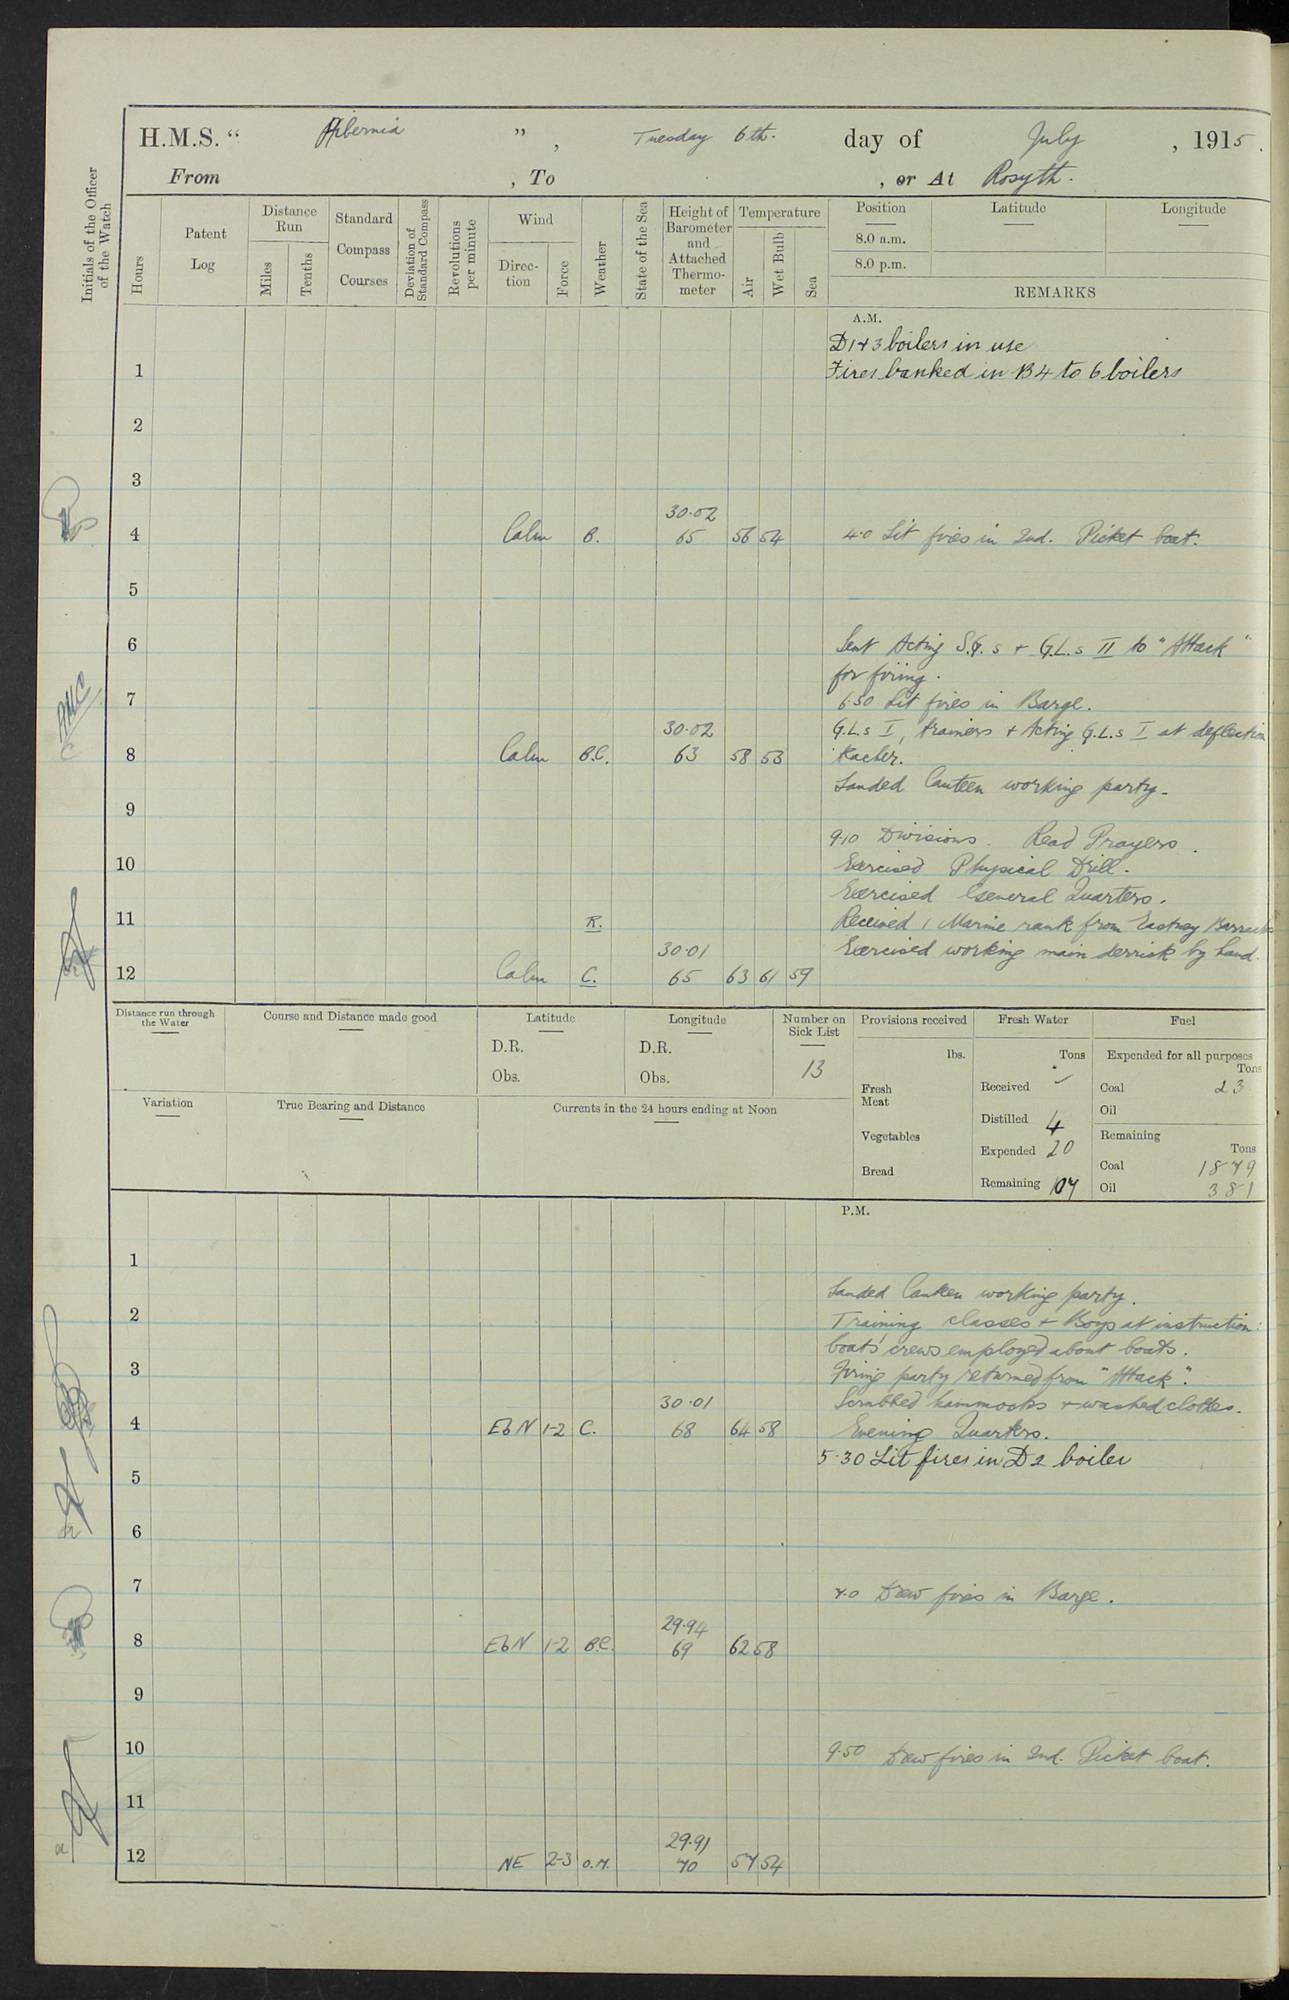 H.M.S. “ Hibernia ” , Tuesday 6th. day of July , 1915.
From , To , or At Rosyth.
Initials of the Officer of the Watch
Hours
Patent Log
Distance Run
Miles
Tenths
Standard Compass Courses
Deviation of Standard Compass
Revolutions per minute
Wind
Direction
Force
Weather
State of the Sea
Height of Barometer and Attached Thermometer
Temperature
Air
Wet Bulb
Sea
Position
Latitude
Longitude
8.0 a.m.
8.0 p.m.
REMARKS
A.M.
D 1 & 3 boilers in use
1 Fires banked in B 4 to 6 boilers
2
3
30.02
4 Calm B. 65 56 54 4.0 Lit fires in 2nd. Picket boat.
5
6 Sent Acting S.G.s + G.L.s II to "Attack"
for firing.
7 6.30 Lit fires in Barge.
30.02 G.L.s I, trainers + Acting G.L.s I at deflection
8 Calm B.C. 63 58 53 Teacher.
Landed Canteen working party.
9
9.10 Divisions. Read Prayers.
10 Exercised Physical Drill.
Exercised General Quarters.
11 R. Received 1 Marine rank from Eastney Barracks
30.01 Exercised working main derrick by hand.
12 Calm C. 65 63 61 59
Distance run through the Water
Course and Distance made good
Latitude
D.R.
Obs.
Longitude
D.R.
Obs.
Number on Sick List
13
Provisions received
lbs.
Fresh Meat
Vegetables
Bread
Fresh Water
Tons
Received ✓
Distilled 4
Expended 20
Remaining 107
Fuel
Expended for all purposes
Tons
Coal 23
Oil
Remaining
Tons
Coal 1879
Oil 381
Variation
True Bearing and Distance
Currents in the 24 hours ending at Noon
P.M.
1
Landed Canteen working party.
2 Training classes + Boys at instruction:
boats' crews employed about boats.
3 Firing party returned from "Attack".
30.01 Scrubbed hammocks + washed clothes.
4 EbN 1-2 C. 68 64 58 Evening Quarters.
5.30 Lit fires in D2 boiler
5
6
7 7.0 Drew fires in Barge.
29.94
8 EbN 1-2 B.C. 69 62 58
9
10 9.50 Drew fires in 2nd. Picket boat.
11
29.91
12 NE 2-3 O.M. 70 57 54